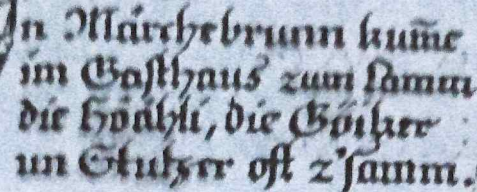 In Märchebrunn kum̄e
im Gasthaus zum Lamm
die Höächli, die Göiker
un Stutzer oft z'samm.